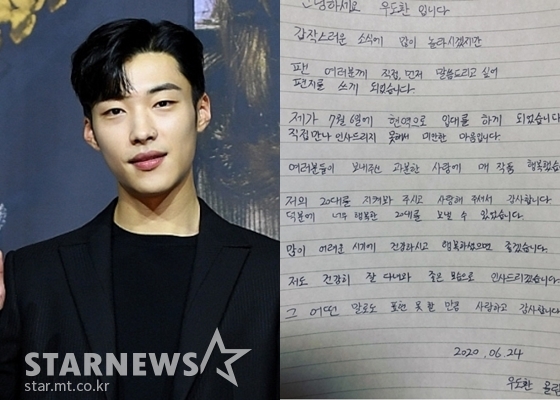 STARNEWS
star.mt.co.kr
안녕하세요 우도환 입니다
갑작스러운 소식에 많이 놀라시겠지만
팬 여러분께 직접, 먼저 말씀드리고 싶어
편지를 쓰게 되었습니다.
제가 7월 6일에 현역으로 입대를 하게 되었습니다
직접 만나 인사드리지 못해서 미안한 마음입니다.
여러분들이 보내주신 과분한 사랑에 매 작품 행복했습
저의 20대를 지켜봐 주시고 사랑해 주셔서 감사합니다
덕분에 너무 행복한 20대를 보낼 수 있었습니다.
많이 어려운 시기에 건강하시고 행복하셨으면 좋겠습니다.
저도 건강히 잘 다녀와 좋은 모습으로 인사드리겠습니다.
그 어떤 말로도 표현 못 할 만큼 사랑하고 감사합니다
2020.06.24
우도환 올림